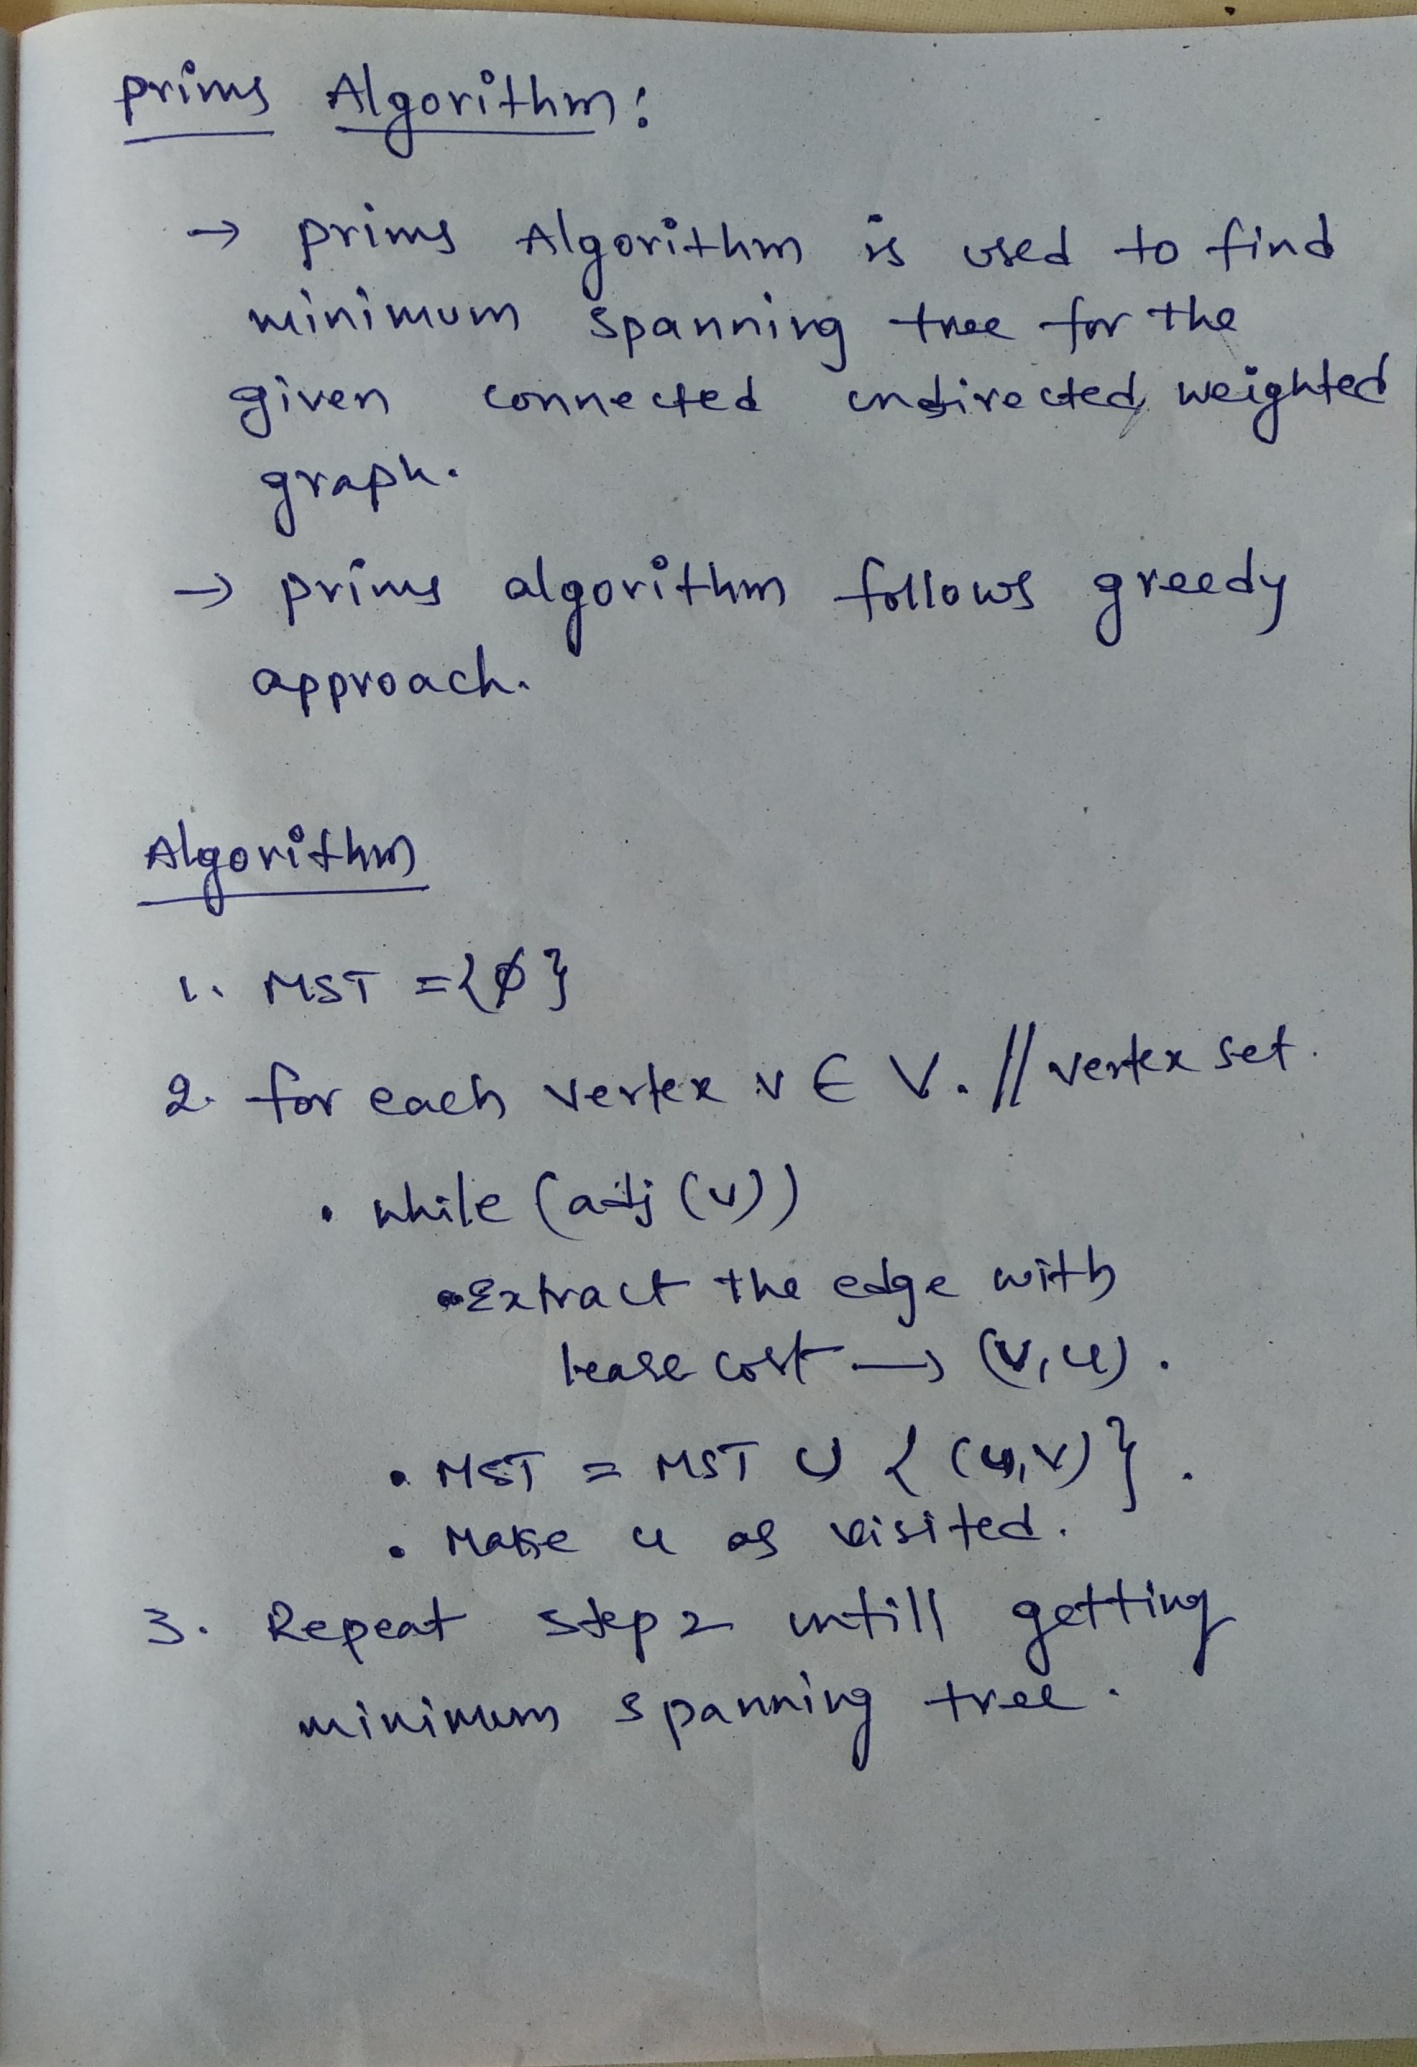 prims Algorithm:
→ prims Algorithm is used to find
minimum spanning tree for the
given connected undirected, weighted
graph.
→ prims algorithm follows greedy
approach.
Algorithm
1. MST = {∅}
2. for each vertex v ∈ V. // vertex set.
• while (adj (v))
• Extract the edge with
lease cost → (v, u).
• MST = MST ∪ { (u, v) }.
• Make u as visited.
3. Repeat step 2 untill getting
minimum spanning tree.